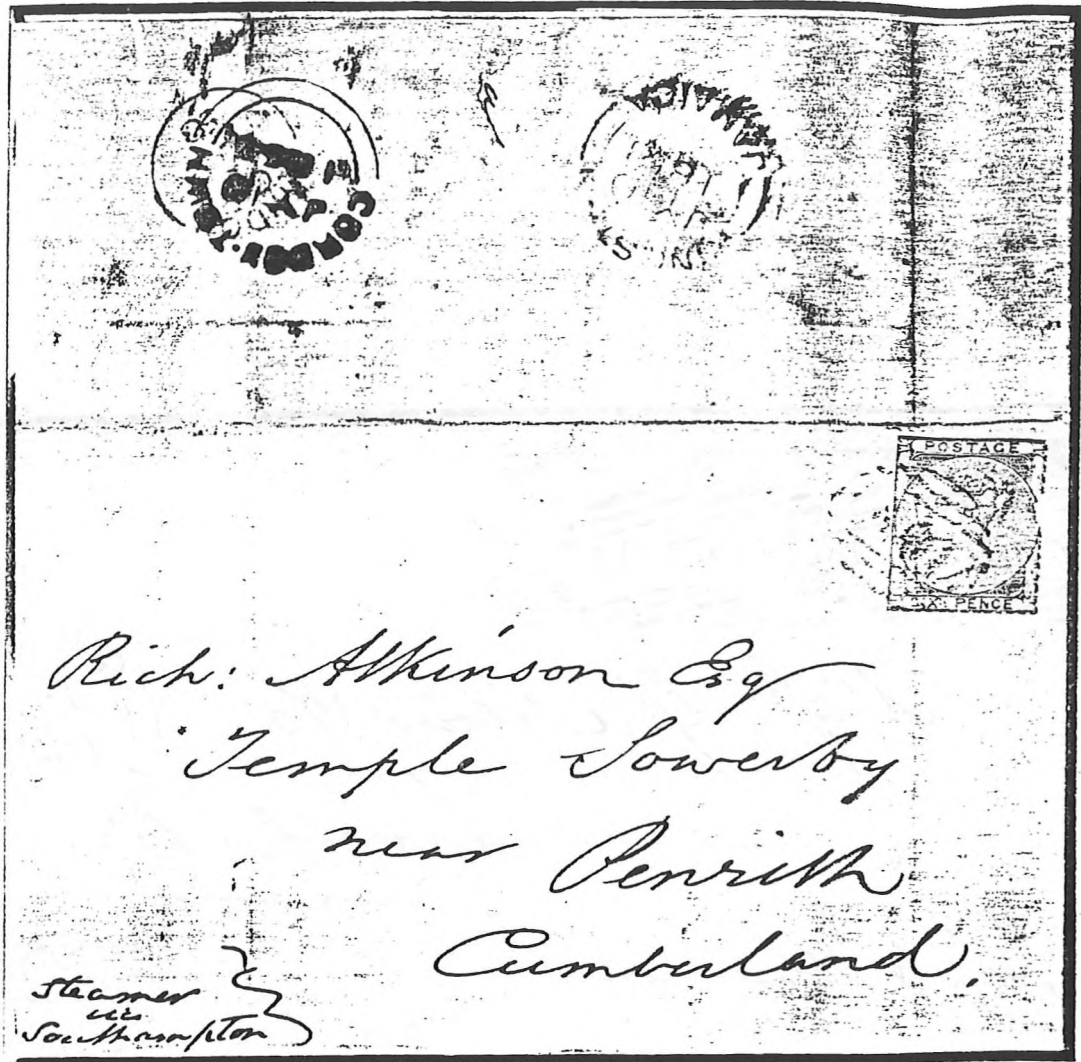 JAMAICA
POSTAGE
SIX PENCE
Rich: Atkinson Esq
Temple Sowerby
near Penrith
Cumberland.
Steamer
via
Southampton